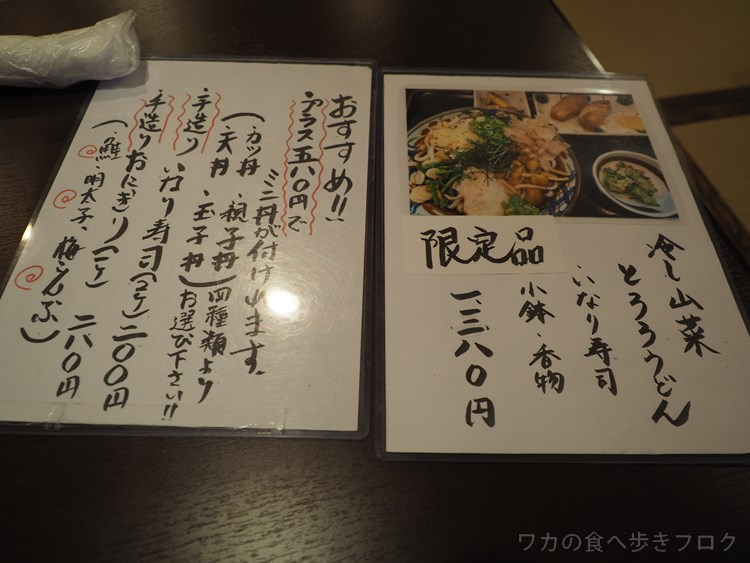 おすすめ!!
プラス五八〇円で
ミニ丼が付けれます。
(・カツ丼 ・親子丼
・天丼 ・玉子丼)四種類より
お選び下さい!!
手造りいなり寿司(2ケ)二〇〇円
手造りおにぎり(一ケ) 二八〇円
(・鮭・明太子、梅こんぶ)
限定品
冷し山菜
とろろうどん
いなり寿司
小鉢・香物
一、三八〇円
ワカの食べ歩きブログ